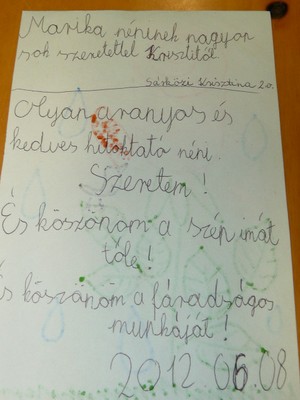 Marika néninek nagyon
sok szeretettel Krisztitől
Sárközi Krisztina 2.o.
Olyan aranyos és
kedves hitoktató néni.
Szeretem!
És köszönöm a szép imát
tőle!
És köszönöm a fáradságos
munkáját!
2012 06.08